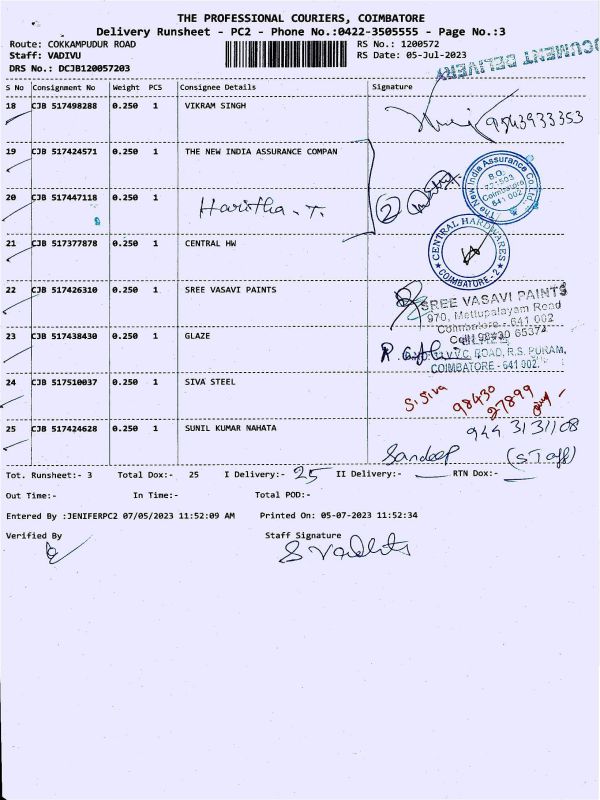 THE PROFESSIONAL COURIERS, COIMBATORE
Delivery Runsheet - PC2 - Phone No.:0422-3505555 - Page No.:3
Route: COKKAMPUDUR ROAD RS No.: 1200572
Staff: VADIVU RS Date: 05-Jul-2023
DRS No.: DCJB120057203
DOCUMENT DELIVERY
S No Consignment No Weight PCS Consignee Details Signature
18 CJB 517498288 0.250 1 VIKRAM SINGH 9543933353
19 CJB 517424571 0.250 1 THE NEW INDIA ASSURANCE COMPAN
The New India Assurance Co. Ltd.
B.O.
721503
Coimbatore
641 002
20 CJB 517447118 0.250 1 Haristha. T. 2
21 CJB 517377878 0.250 1 CENTRAL HW
CENTRAL HARDWARES
COIMBATORE - 2
22 CJB 517426310 0.250 1 SREE VASAVI PAINTS
SREE VASAVI PAINTS
970, Mettupalayam Road
Coimbatore - 641 002
Cell 98430 65374
23 CJB 517438430 0.250 1 GLAZE
ROAD, R.S. PURAM,
COIMBATORE - 641 002.
24 CJB 517510037 0.250 1 SIVA STEEL
S. Siva 98430
27899
25 CJB 517424628 0.250 1 SUNIL KUMAR NAHATA 944 3131108
Sandeep (Staff)
Tot. Runsheet:- 3 Total Dox:- 25 I Delivery:- 25 II Delivery:- RTN Dox:-
Out Time:- In Time:- Total POD:-
Entered By :JENIFERPC2 07/05/2023 11:52:09 AM Printed On: 05-07-2023 11:52:34
Verified By Staff Signature